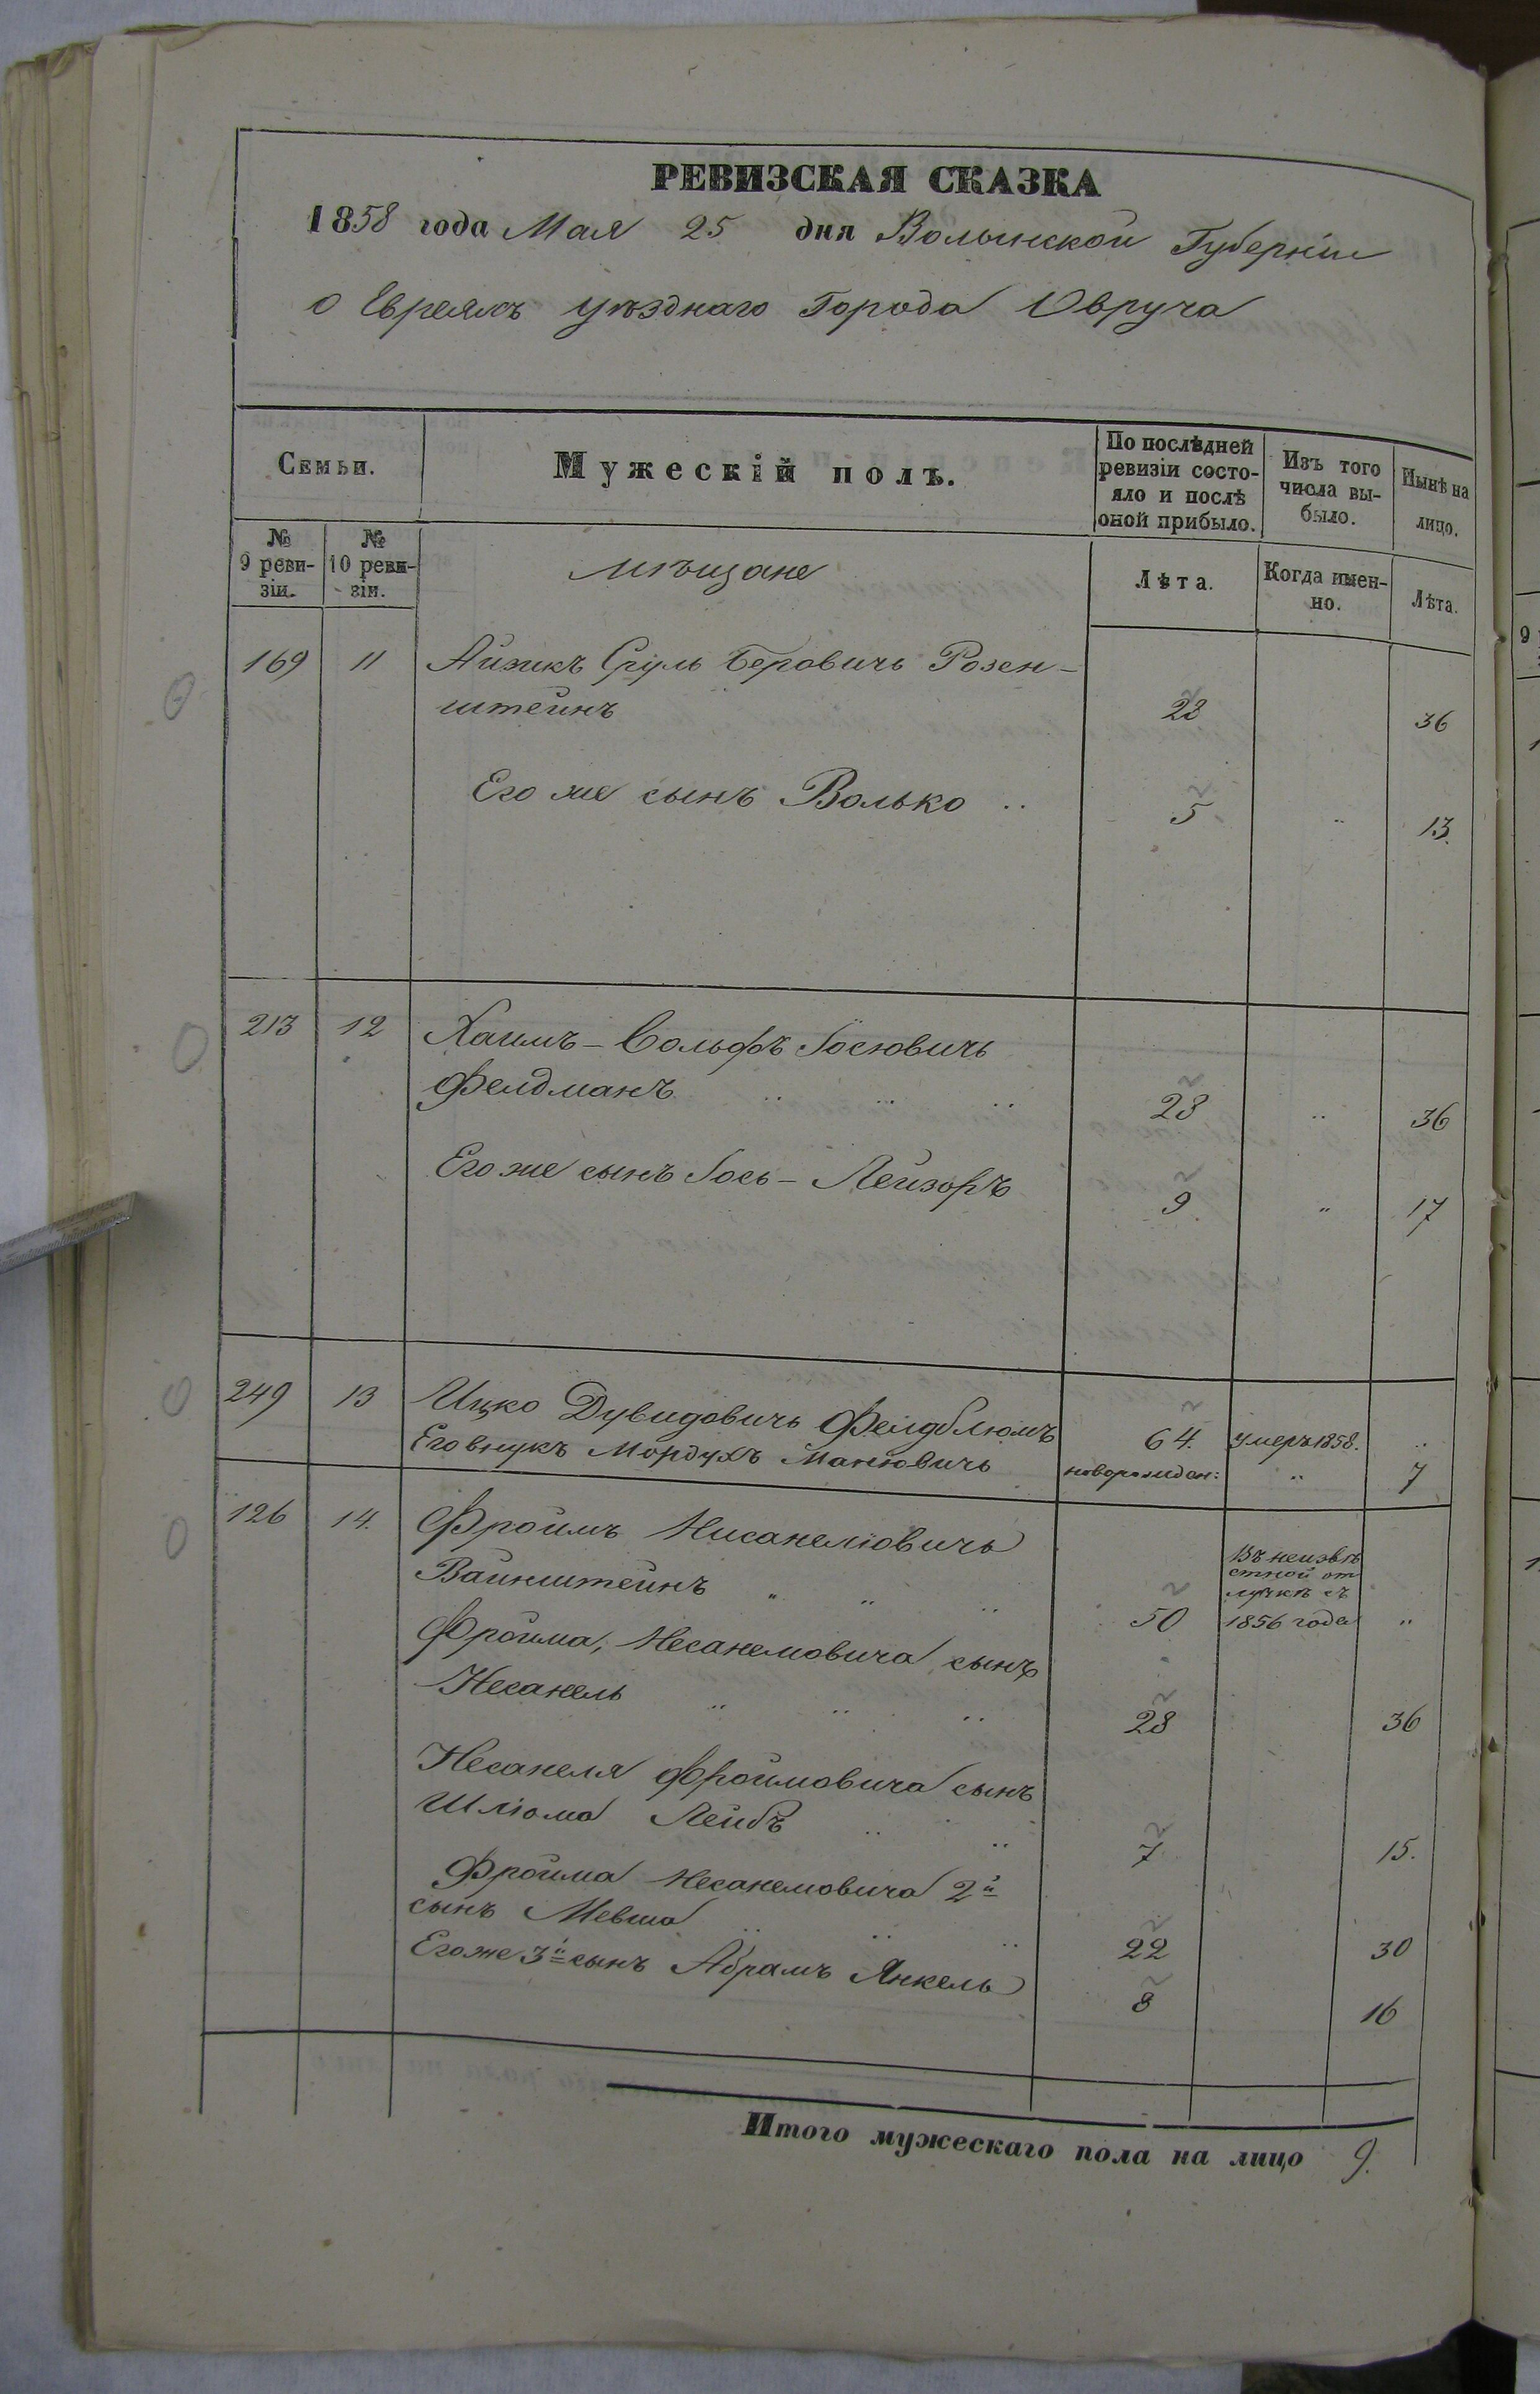 РЕВИЗСКАЯ СКАЗКА
1858 года Мая 25 дня Волынской Губерніи
о Евреяхъ уѣзднаго Города Овруча
Семьи.
Мужескій полъ.
По послѣдней ревизіи состо-
яло и послѣ
оной прибыло.
Изъ того
числа вы-
было.
Нынѣ на
лицо.
№
9 реви-
зіи.
№
10 реви-
зіи.
мѣщане
Лѣта.
Когда имен-
но.
Лѣта.
169 11 Айзикъ Сруль Беровичъ Розен-
штейнъ 28 36
Его же сынъ Волько .. 5 .. 13.
213 12 Хаимъ-Вольфъ Іосіовичъ
Фелдманъ .. .. .. 28 .. 36
Его же сынъ Іось-Лейзоръ 9 " 17
249 13 Ицко Дувидовичъ Фелдблюмъ 64. умеръ 1858. ..
Его внукъ Мордухъ Маніовичъ новорожден: .. 7
126 14. Фроимъ Нисанеліовичъ
Вайнштейнъ " .. .. 50 Въ неизвѣ
стной от
лучкѣ съ
1856 года ..
Фроима, Несанеліовича сынъ
Несанель .. .. .. 28 36
Несанеля Фроимовича сынъ
Шліома Лейбъ .. .. 7 15.
Фроима Несанеліовича 2й
сынъ Мевша .. .. .. 22 30
Его же 3й сынъ Абрамъ Янкель 8 16
Итого мужескаго пола на лицо 9.